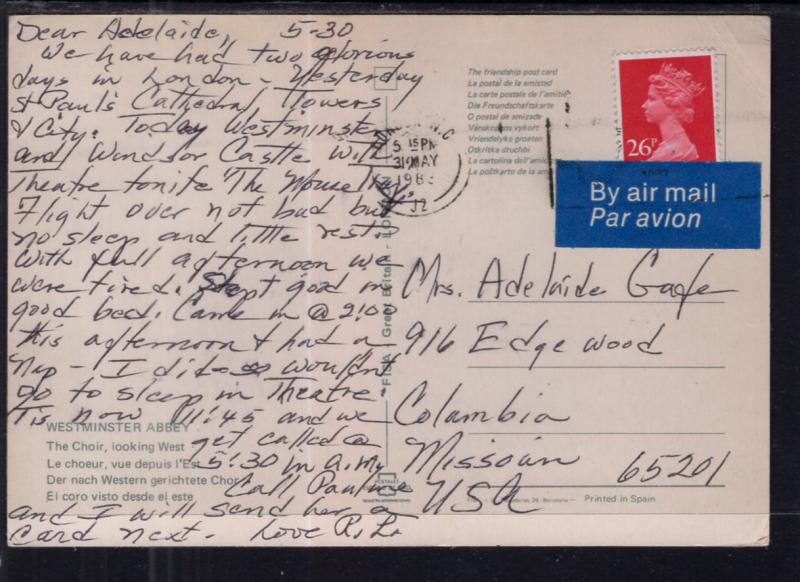 Dear Adelaide, 5-30
We have had two glorious
days in London - Yesterday
St Paul's Cathedral, Towers
& City. Today Westminster
and Windsor Castle with
Theatre tonite "The Mousetrap"
Flight over not bad but
no sleep and little rest.
With full afternoon we
were tired. Slept good in
good bed. Came in @ 2:00
this afternoon & had a
Nap - I did so wouldn't
go to sleep in Theatre.
Tis now 11:45 and we
get called @
5:30 in a.m.
Call Pauline
and I will send her a
card next. Love R. L.
WESTMINSTER ABBEY
The Choir, looking West
Le choeur, vue depuis l'Est
Der nach Western gerichtete Chor
El coro visto desde el este
FISA - Great Britain - LONDON
The friendship post card
La postal de la amistad
La carte postale de l'amitié
Die Freundschaftskarte
O postal de amizade
Vänskapens vykort
Vriendelijke groeten
Otkritka druchbi
La cartolina dell'amic
La poštkarto de la ami
LONDON W.C.
5 15 PM
31 MAY
198
12
26P
By air mail
Par avion
Mrs. Adelaide Gage
916 Edgewood
Columbia
Missouri 65201
USA
Barcelona - Printed in Spain